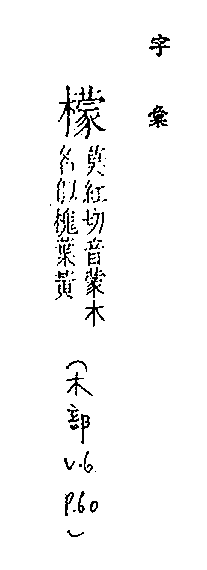 字彙
檬
莫紅切音蒙木
名似槐葉黃
(木部 V.6 P.60)